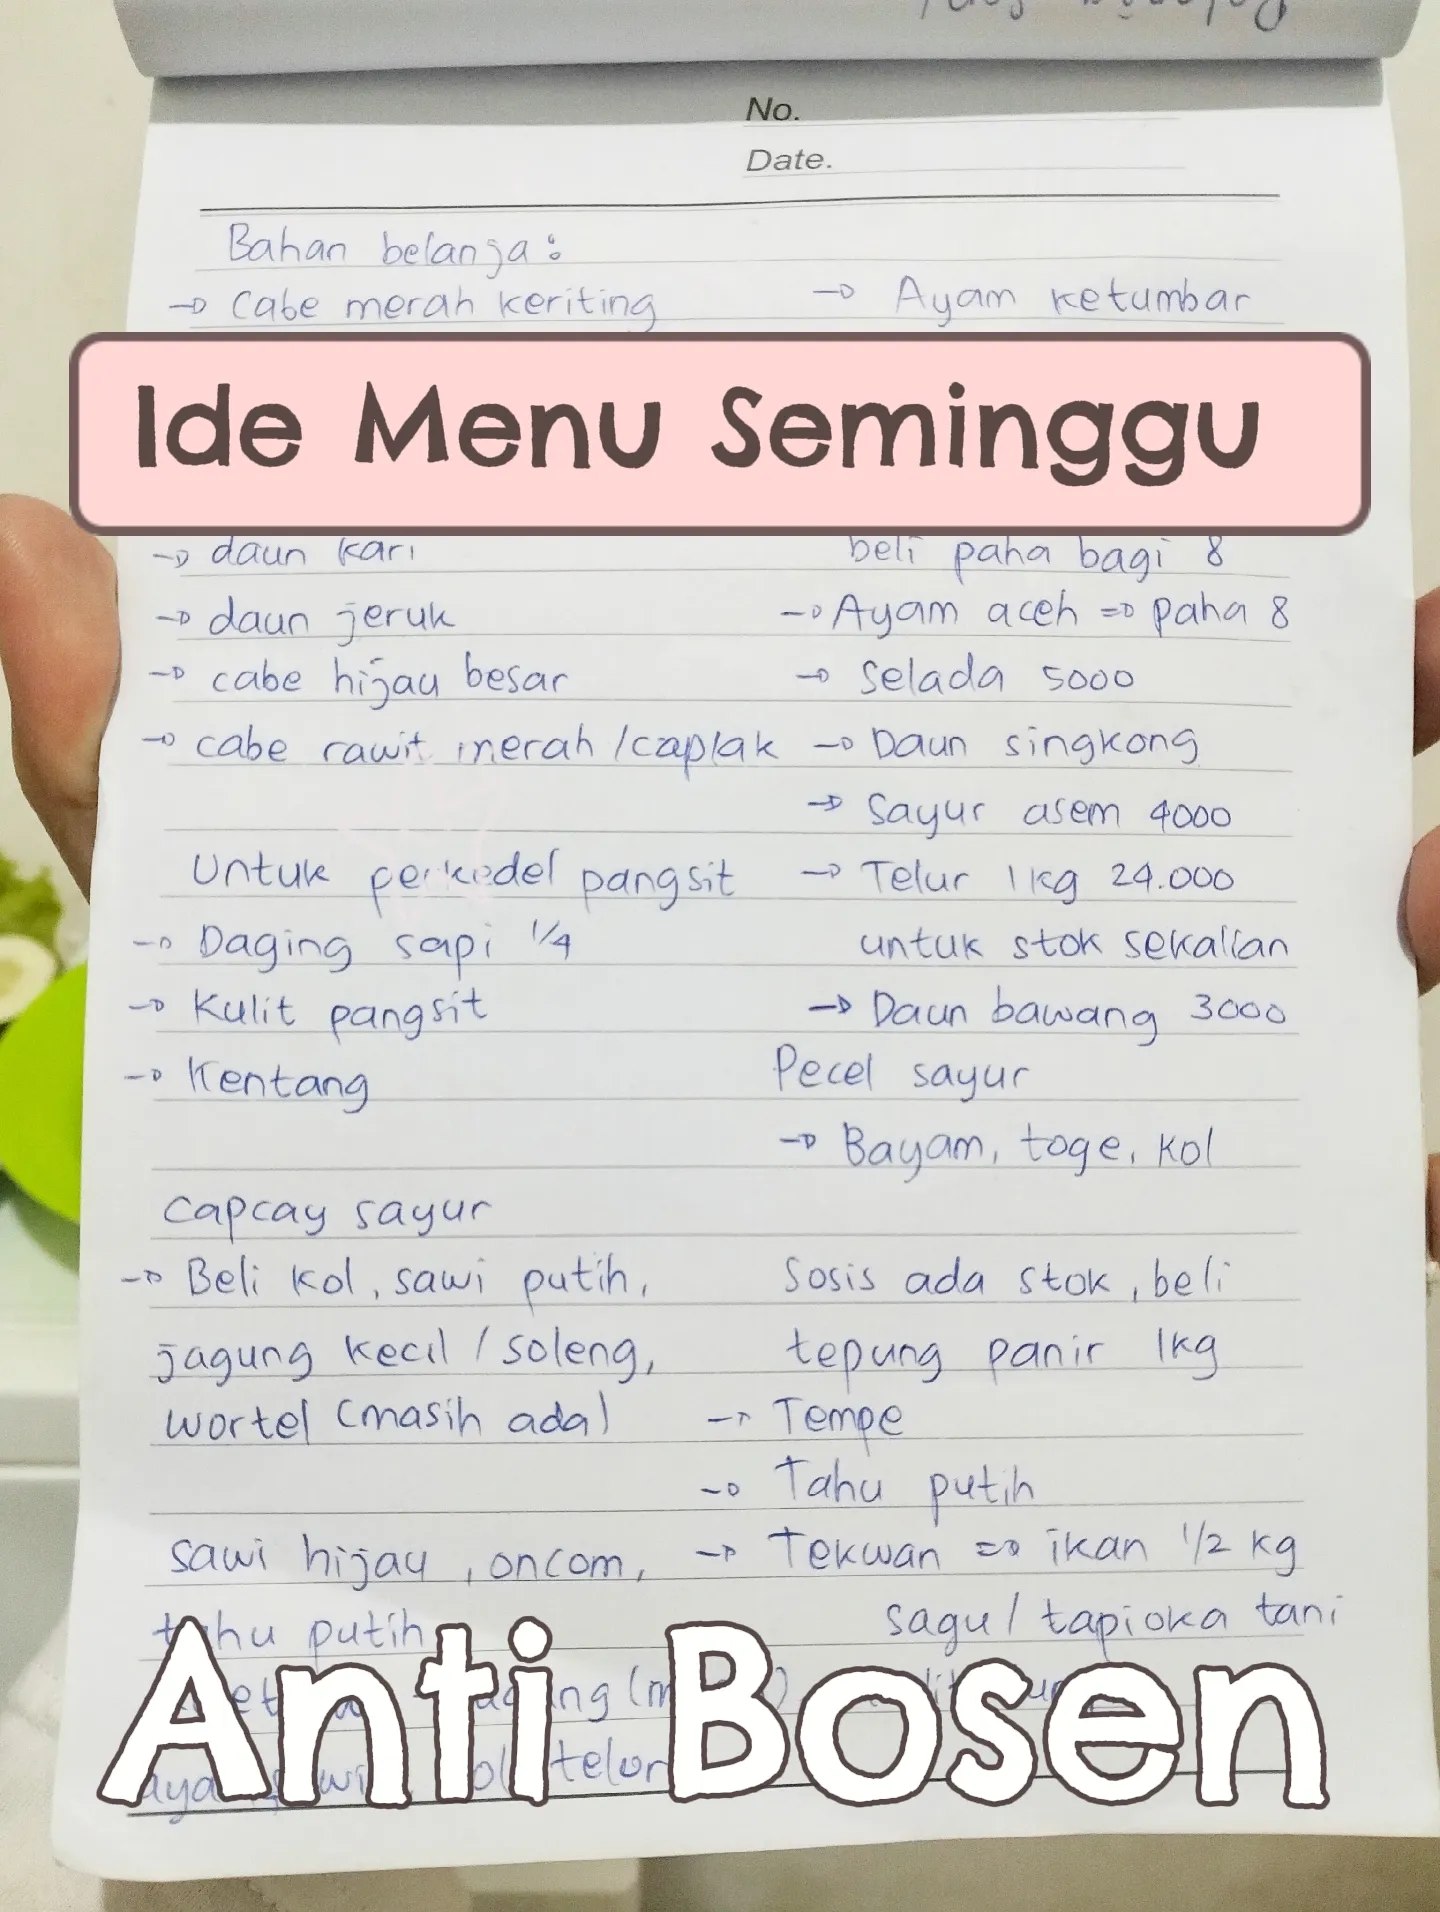 No.
Date.
Bahan belanja :
→ Cabe merah keriting
→ Ayam ketumbar
Ide Menu Seminggu
→ daun kari
→ daun jeruk
→ cabe hijau besar
→ cabe rawit merah / caplak
Untuk perkedel pangsit
→ Daging sapi 1/4
→ Kulit pangsit
→ Kentang
Capcay sayur
→ Beli kol, sawi putih,
jagung kecil / soleng,
wortel (masih ada)
sawi hijau, oncom,
tahu putih
beli paha bagi 8
→ Ayam aceh => paha 8
→ Selada 5000
→ Daun singkong
→ Sayur asem 4000
→ Telur 1 kg 24.000
untuk stok sekalian
→ Daun bawang 3000
Pecel sayur
→ Bayam, toge, kol
Sosis ada stok, beli
tepung panir 1kg
→ Tempe
→ Tahu putih
→ Tekwan => ikan 1/2 kg
sagu / tapioka tani
telur
Anti Bosen